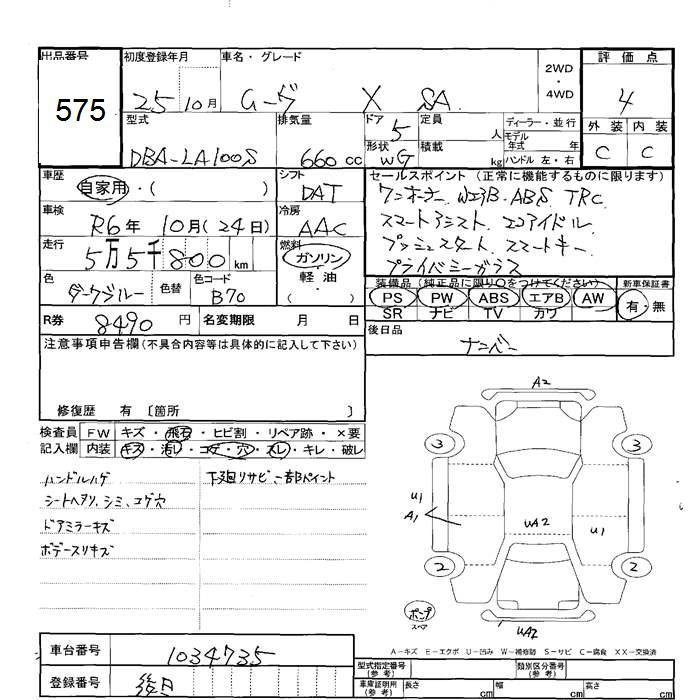 出品番号
575
初度登録年月
25 10月
車名・グレード
ムーヴ X SA
2WD
・
4WD
評価点
4
外装 内装
C C
型式
DBA-LA100S
排気量
660 cc
ドア
5
形状
WG
定員
人
積載
kg
ディーラー・並行
モデル
年式 年
ハンドル 左・右
車歴
自家用・( )
シフト
DAT
車検
R6年 10月(24日)
冷房
AAC
走行
5万5千800 km
燃料
ガソリン
・
軽油
( )
色
ダークブルー
色替
色コード
B70
R券 8490 円
名変期限 月 日
セールスポイント (正常に機能するものに限ります)
ワンオーナー WエアB・ABS TRC
スマートアシスト エコアイドル
プッシュスタート スマートキー
プライバシーガラス
装備品 (純正品に限り○をつけてください)
PS PW ABS エアB AW
SR ナビ TV カワ
新車保証書
有・無
後日品
ナンバー
注意事項申告欄(不具合内容等は具体的に記入して下さい)
修復歴 有 〔箇所 〕
検査員
記入欄
FW キズ・飛石・ヒビ割・リペア跡・×要
内装 キズ・汚レ・コゲ・穴・スレ・キレ・破レ
ハンドルハゲ
シートヘタリ、シミ、コゲ穴
ドアミラーキズ
ボデースリキズ
下廻りサビ 一部ペイント
A2
3
3
U1
A1
UA2
U1
2
2
ポンプ
スペア
UA2
A-キズ E-エクボ U-凹み W-補修跡 S-サビ C-腐食 XX-交換済
車台番号 1034735
登録番号 後日
型式指定番号
(参考)
類別区分番号
(参考)
車庫証明用
(参考)
長さ cm
幅 cm
高さ cm